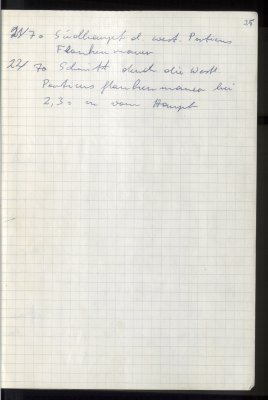 25
21/70 Südhaupt d. west. Porticus
Flankenmauer
22/70 Schnitt durch die Westl.
Porticus flankenmauer bei
2,30 m vom Haupt